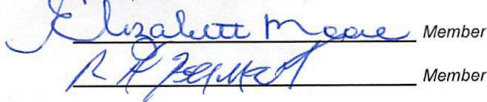 Elizabeth Moore Member
Member